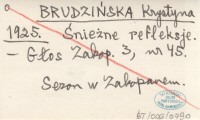 BRUDZIŃSKA Krystyna
1925. Śnieżne refleksje.
– Głos Zakop. 3, nr 45.
Sezon w Zakopanem.